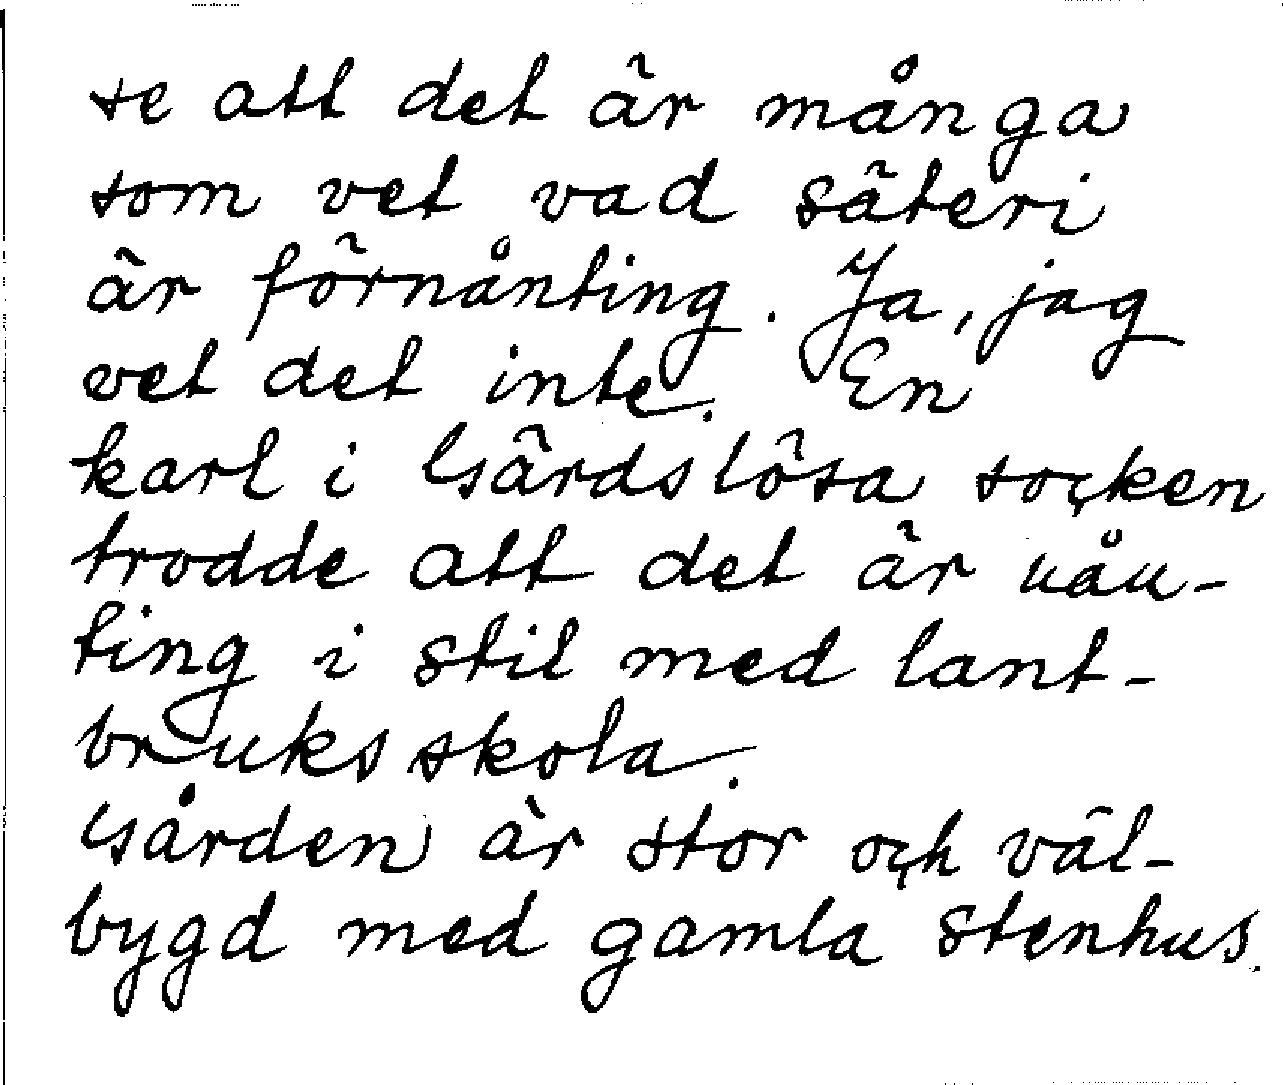 te att det är många
som vet vad säteri
är förnånting. Ja, jag
vet det inte. En
karl i Gärdslösa socken
trodde att det är nån-
ting i stil med lant-
bruksskola.
Gården är stor och väl-
bygd med gamla stenhus.